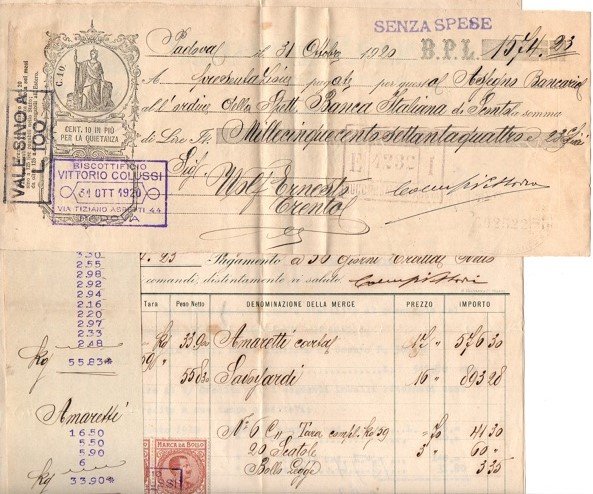 SENZA SPESE
Padova, il 31 Ottobre 1920 B.P.L. 1574.23
C. 10
A presentazione pagate per questo Assegno Bancario
all'ordine della Spett. Banca Italiana di Sconto la somma
di Lire It. Millecinquecentosettantaquattro e 23 c/mi
VALE SINO A L. 100
CENT. 10 IN PIÙ
PER LA QUIETANZA
BISCOTTIFICIO
VITTORIO COLUSSI
31 OTT 1920
VIA TIZIANO ASPETTI 44
PADOVA
Sig.
Ernesto
Trento
Colussi Vittorio
4.23 Pagamento a 30 Giorni Tratta
comandi, distintamente vi saluto. Colussi Vittorio
3.30
2.55
2.98
2.92
2.94
2.16
2.20
2.97
2.33
2.48
Kg 55.83
Tara Peso Netto DENOMINAZIONE DELLA MERCE PREZZO IMPORTO
Kg 33.900 Amaretti 17 " 576 30
55.830 Savoiardi 16 " 893 28
Amaretti
16.50
5.50
5.90
6
Kg 33.90
N° 6 Cn Tara compl. Kg 59 = 70 41 30
20 Scatole 3 " 60 "
Bollo 3 35
MARCA DA BOLLO